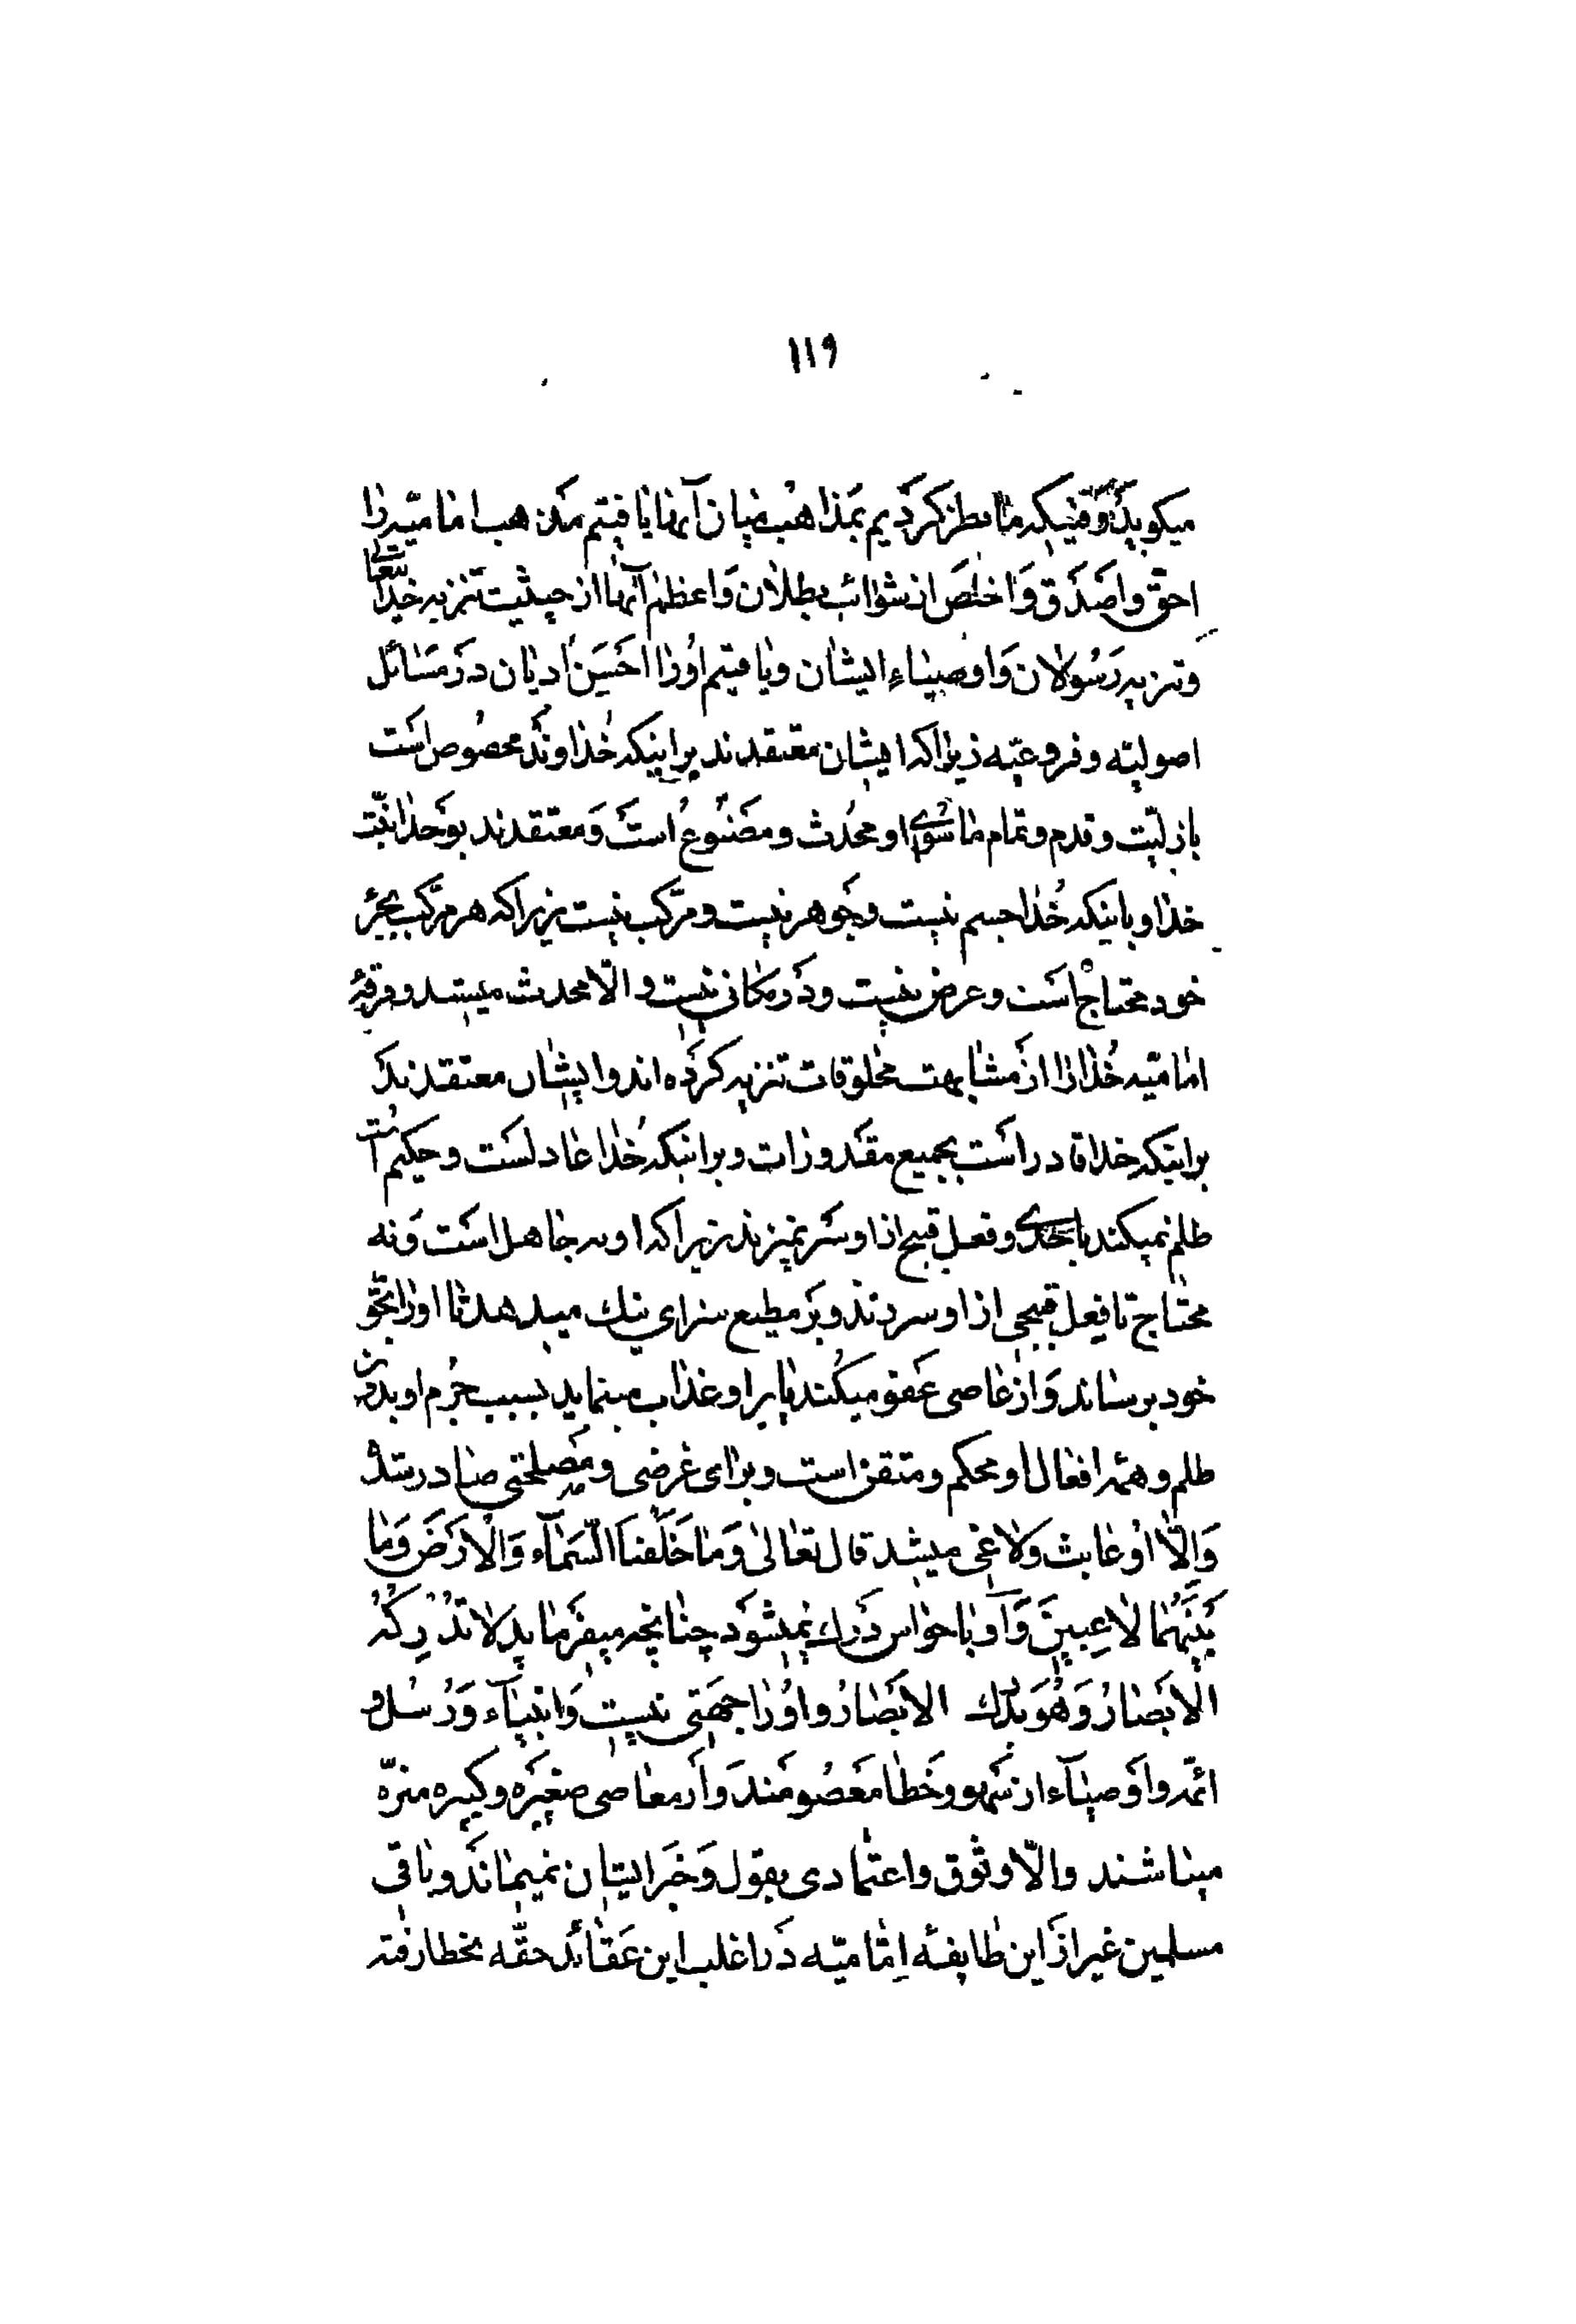 ۱۱۹
میکوید وقتیکه ما نظر کردیم بمذاهب میان آنها یافتیم مذهب امامیه را
احق واصدق و اخلص از شوائب بطلان و اعظم آنها از حیثیت تنزیه خدایتعالی
و تنزیه رسولان و اوصیاء ایشان و یافتیم اورا احسن ادیان در مسائل
اصولیه و فروعیه زیرا که ایشان معتقدند براینکه خداوند مخصوص است
بازلیت و قدم و تمام ما سوای او محدث و مصنوع است و معتقدند بوحدانیت
خدا و باینکه خدا جسم نیست و جوهر نیست و مرکب نیست زیرا که هر مرکب بجزء
خود محتاج است و عرض نیست و در مکانی نیست و الّا محدث میشد و فرقهٔ
امامیه خدا را از مشابهت مخلوقات تنزیه کرده اند و ایشان معتقدند
براینکه خدا قادر است بجمیع مقدورات و براینکه خدا عادلست و حکیم است
ظلم نمیکند باحدی و فعل قبیح از او سر نمیزند زیرا که او نه جاهل است و نه
محتاج تا فعل قبیحی از او سر زند و بر مطیع سزای نیک میدهد تا او را بحق
خود برساند و از عاصی عفو میکند یا بر او عذاب مینماید بسبب جرم او بدون
ظلم و همه افعال او محکم و متقن است و برای غرضی و مصلحتی صادر شده
وَاِلّا او عابث و لاغی میشد قال تعالی وَمَا خَلَقْنَا السَّمَآءَ وَالْاَرْضَ وَمَا
بَيْنَهُمَا لَاعِبِينَ وَ او با حواس درک نمیشود چنانچه میفرماید لَا تُدْرِكُهُ
الْاَبْصَارُ وَهُوَ يُدْرِكُ الْاَبْصَارَ و او را جهتی نیست و انبیآء و رسل و
ائمه و اوصیآء از سهو و خطا معصومند و از معاصی صغیره و کبیره منزّه
میباشند والّا وثوق و اعتمادی بقول و خبر ایشان نمیماند و باقی
مسلمین غیر از این طایفهٔ اِمامیّه در اغلب این عقائد حقّه بخطا رفته